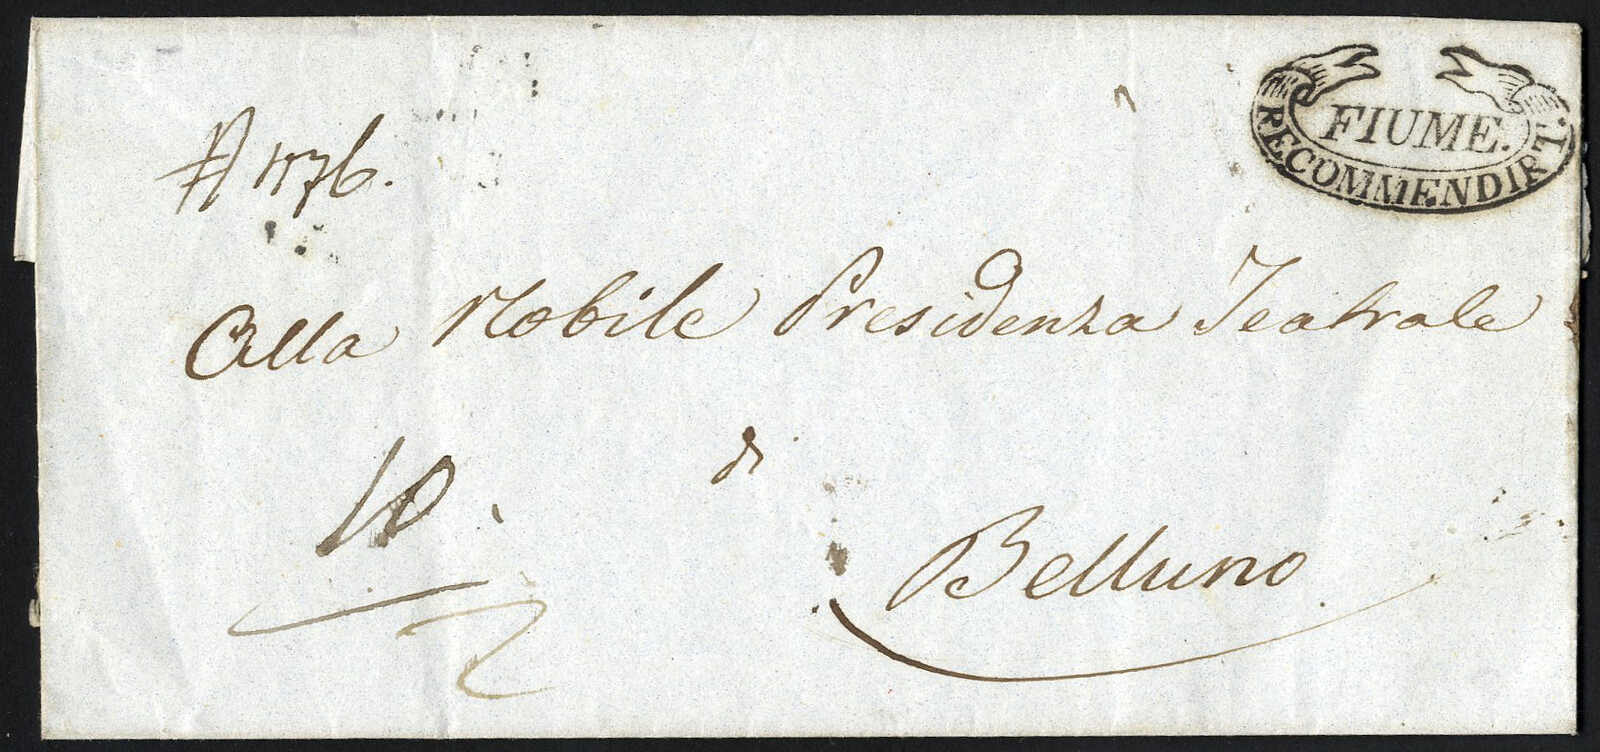 FIUME.
RECOMMENDIRT.
1776.
Alla Nobile Presidenza Teatrale
10
di
Belluno.